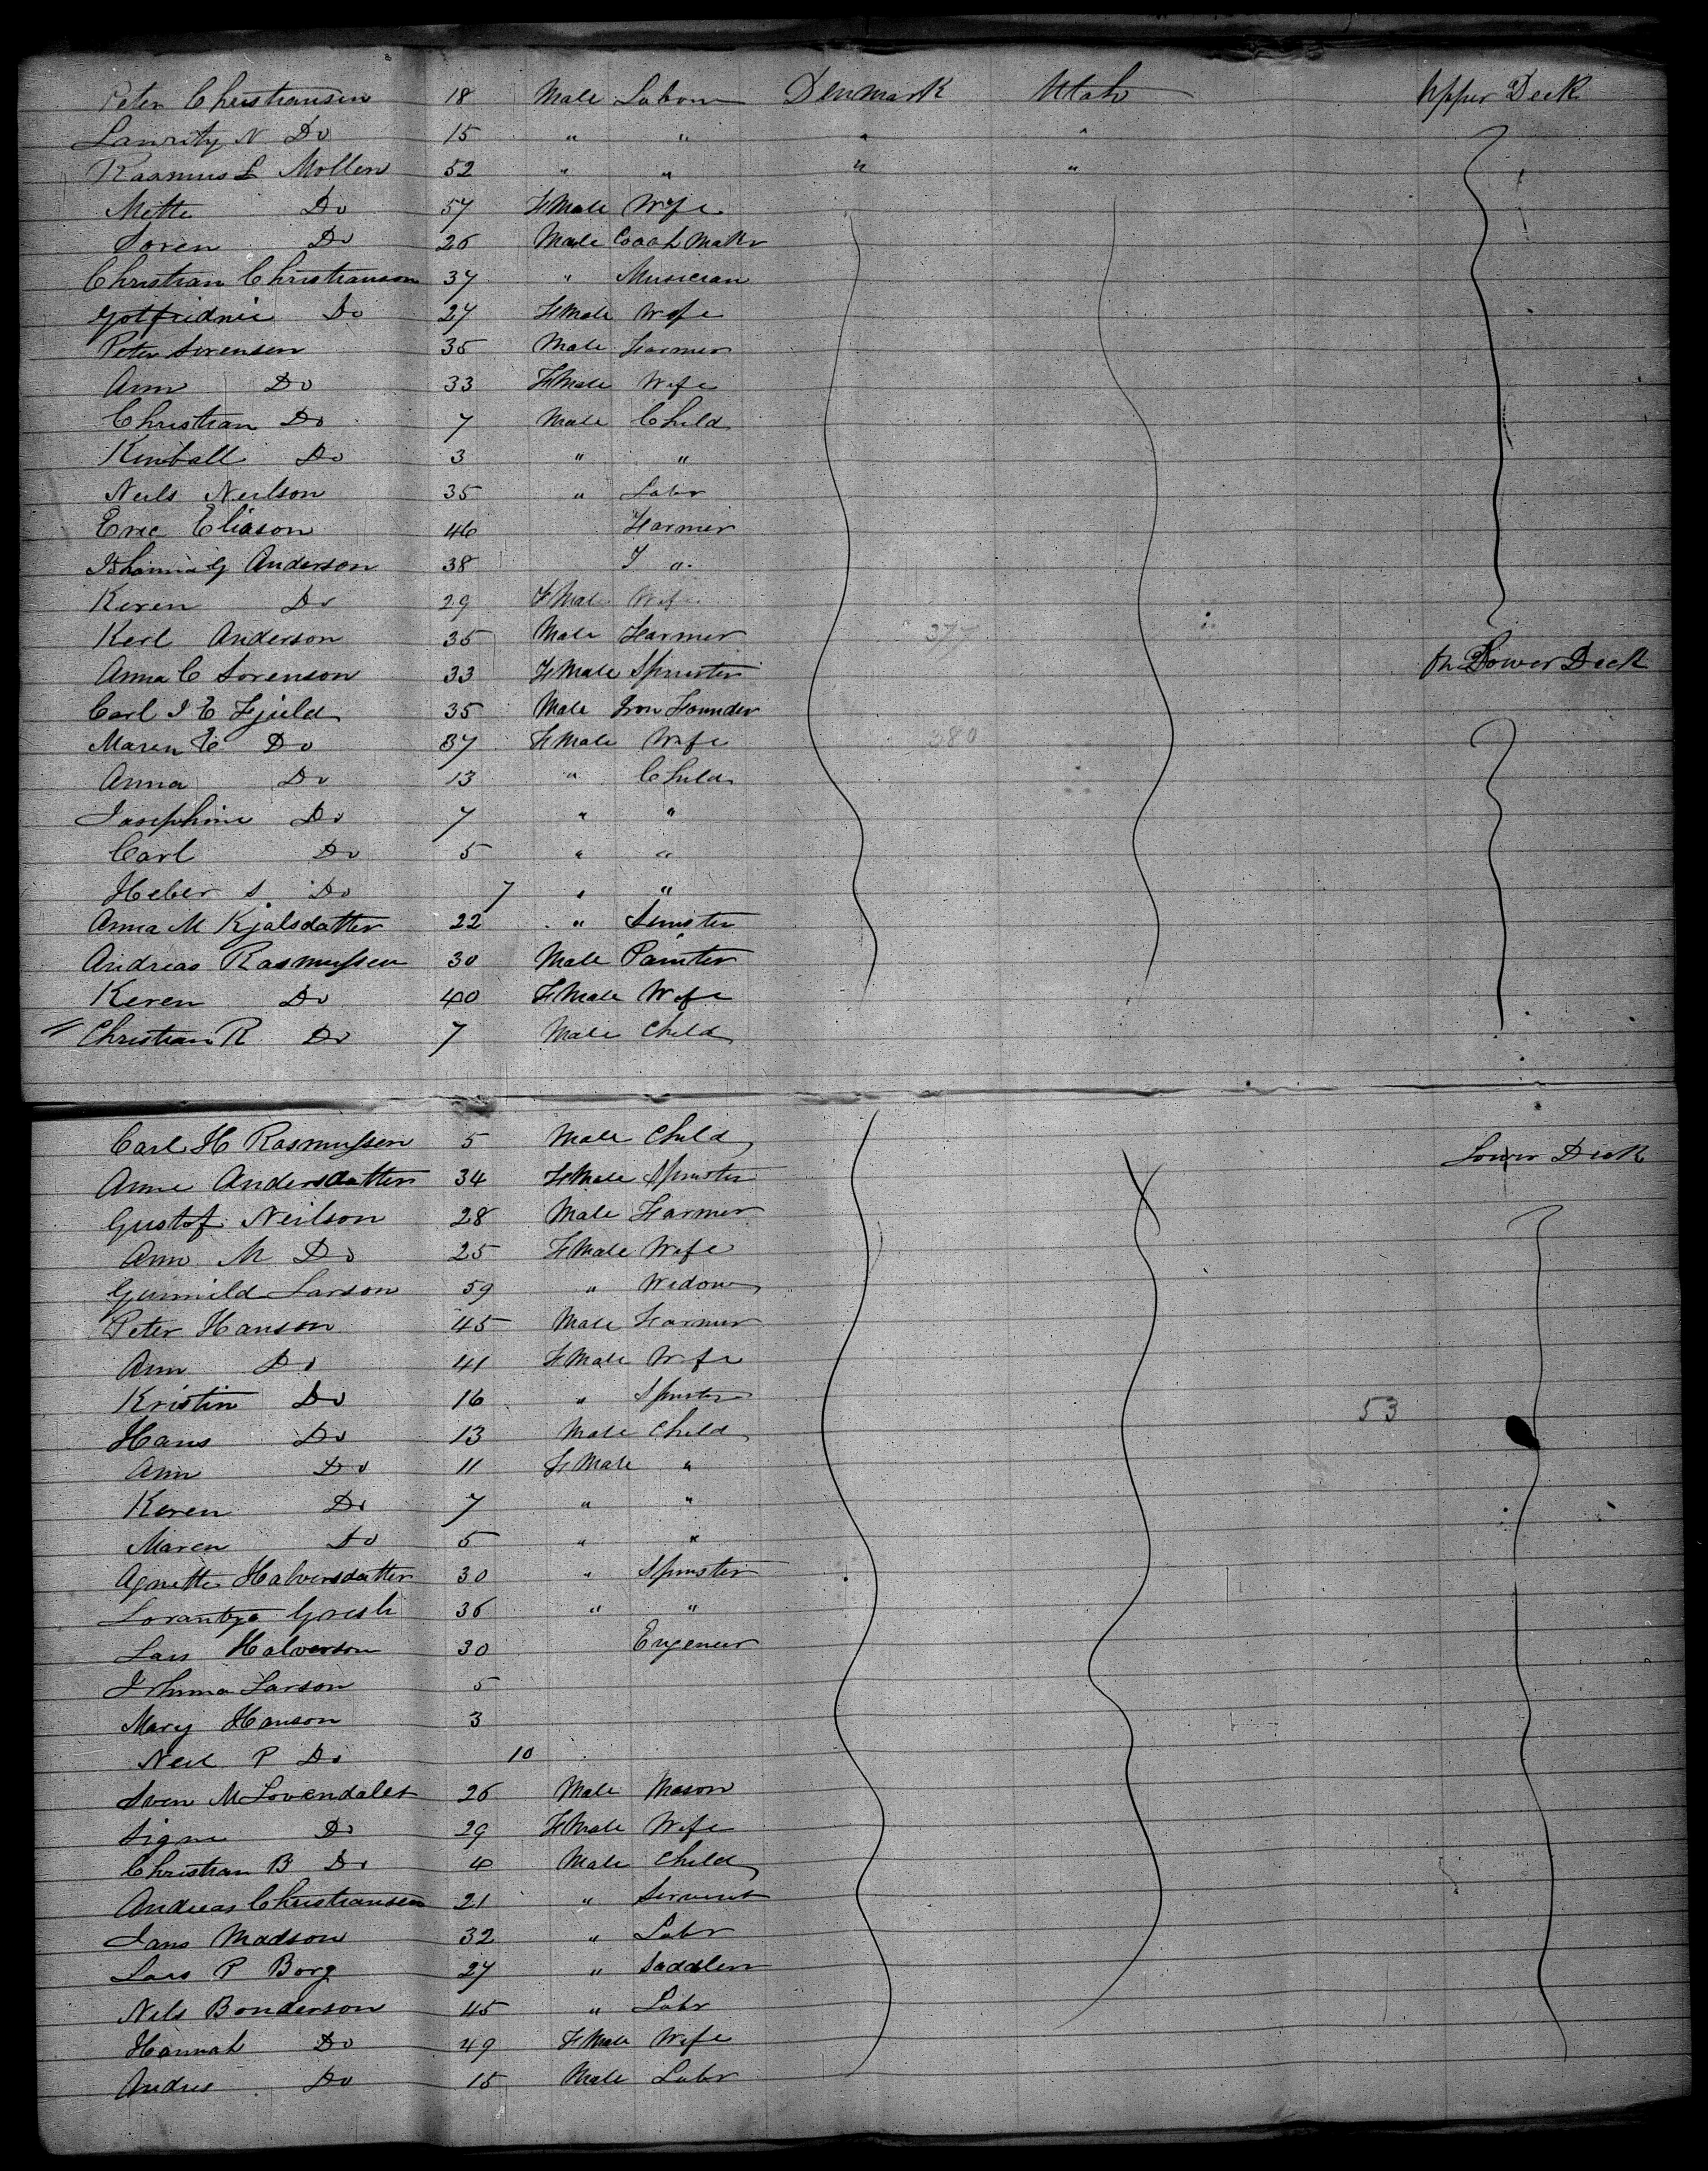 Peter Christiansen 18 Male Labour Denmark Utah Upper Deck
Lauritz N Do 15 " " " "
Rasmus L Mollen 52 " " " "
Mette Do 57 FMale Wife
Soren Do 26 Male Coach Makr
Christian Christianson 37 " Musician
Gotfridnie Do 27 FMale Wife
Peter Sorensen 35 Male Farmer
Ann Do 33 FMale Wife
Christian Do 7 Male Child
Kimball Do 3 " "
Neils Neilson 35 " Labr
Eric Eliason 46 Farmer
Anderson 38 "
Keren Do 29 FMale Wife
Kerl Anderson 35 Male Farmer 377
Anna C Sorenson 33 FMale Spinster Lower Deck
Carl I E Fjeld 35 Male Iron Founder
Maren E Do 37 FMale Wife 380
Anna Do 13 " Child
Josephine Do 7 " "
Carl Do 5 " "
Heber S Do 7 " "
Anna M Kjalsdatter 22 "
Andreas Rasmussen 30 Male Painter
Keren Do 40 FMale Wife
Christian R Do 7 Male Child
Carl H Rasmussen 5 Male Child Lower Deck
Anne Andersdatter 34 FMale Spinster
Gustof Neilson 28 Male Farmer
Ann M Do 25 FMale Wife
Gunnild Larson 59 " Widow
Peter Hanson 45 Male Farmer
Ann Do 41 FMale Wife
Kristin Do 16 " Spinster
Hans Do 13 Male Child 53
Ann Do 11 FMale "
Keren Do 7 " "
Maren Do 5 " "
Agnette Halversdatter 30 " Spinster
36 " "
Lars Halverson 30 Engeneer
Larson 5
Mary Hanson 3
Neil P Do 10
Sven M Lovendalet 26 Male Mason
Signe Do 29 FMale Wife
Christian B Do 4 Male Child
Andreas Christiansen 21 " Servent
Jans Madson 32 " Labr
Lars P Borg 27 " Saddler
Nils Bonderson 45 " Labr
Hannah Do 49 FMale Wife
Andres Do 15 Male Labr